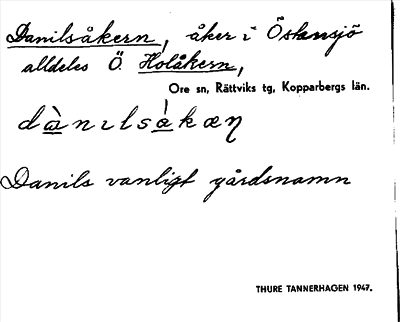 Danilsåkern, åker i Östansjö
alldeles Ö. Holåkern,
Ore sn, Rättviks tg, Kopparbergs län.
dànılsàkæɳ
Danils vanligt gårdsnamn
THURE TANNERHAGEN 1947.